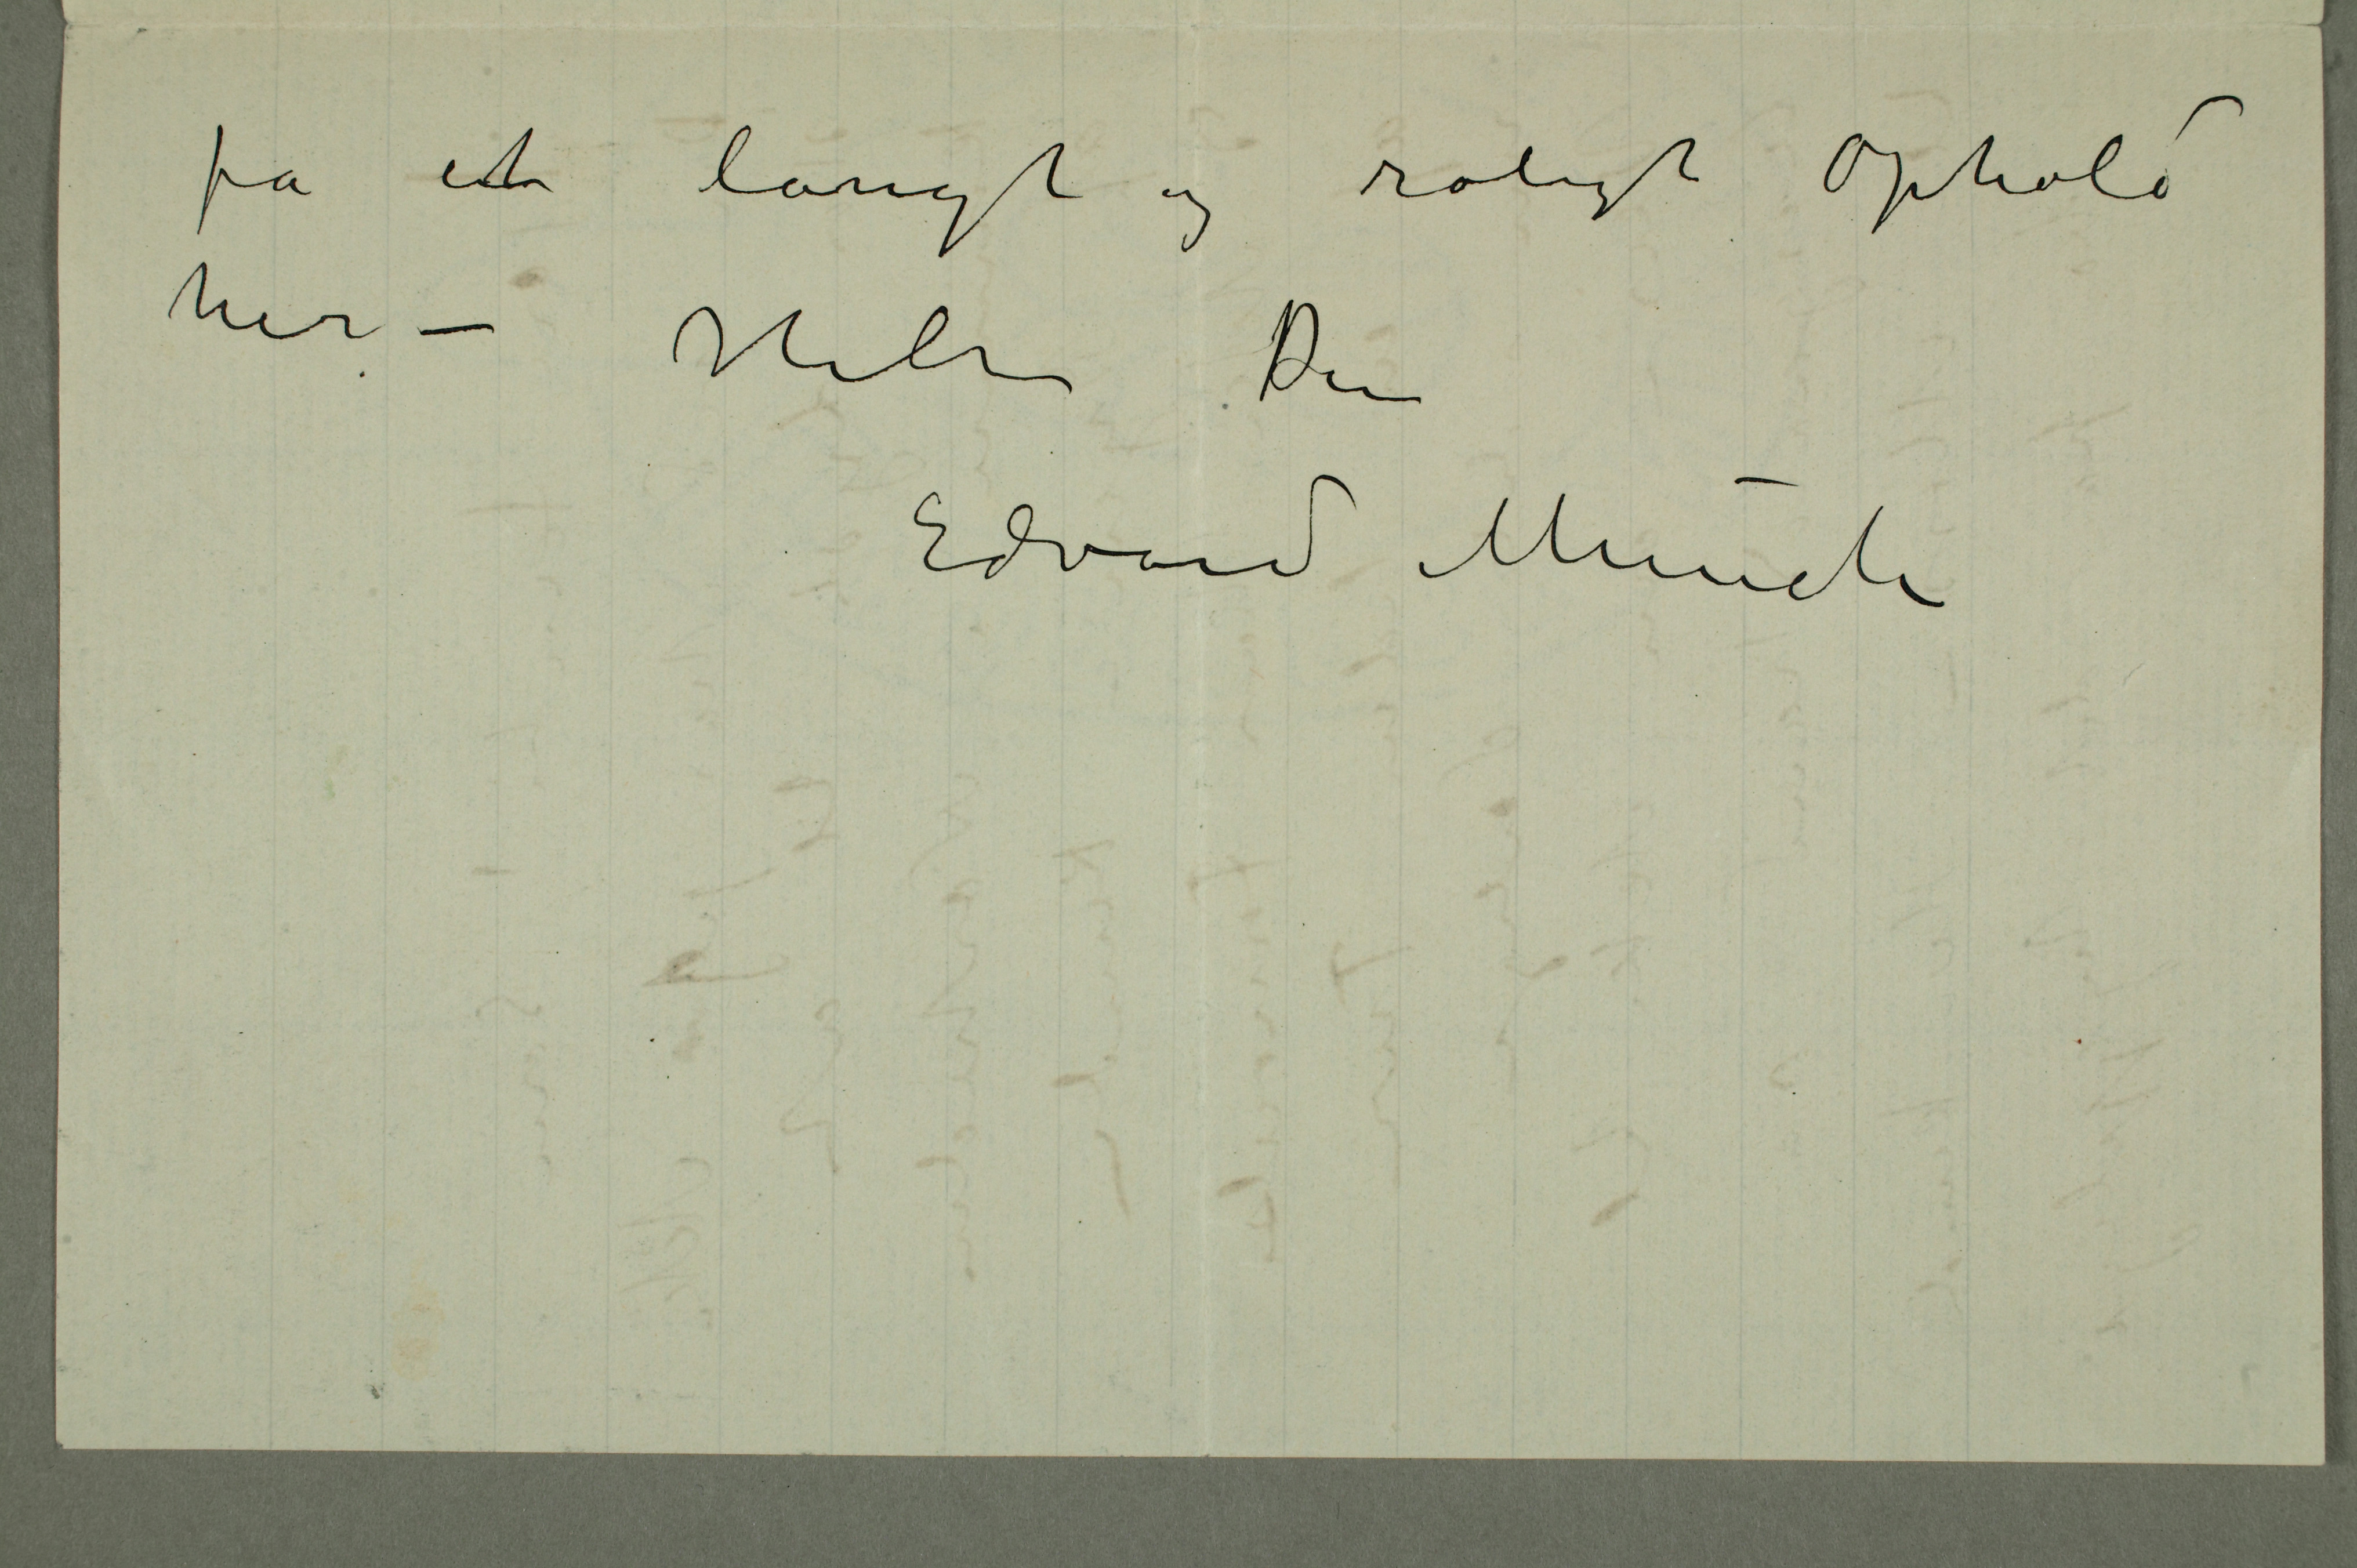 få et langt og roligt Ophold
her – Hilsen Din
Edvard Munch